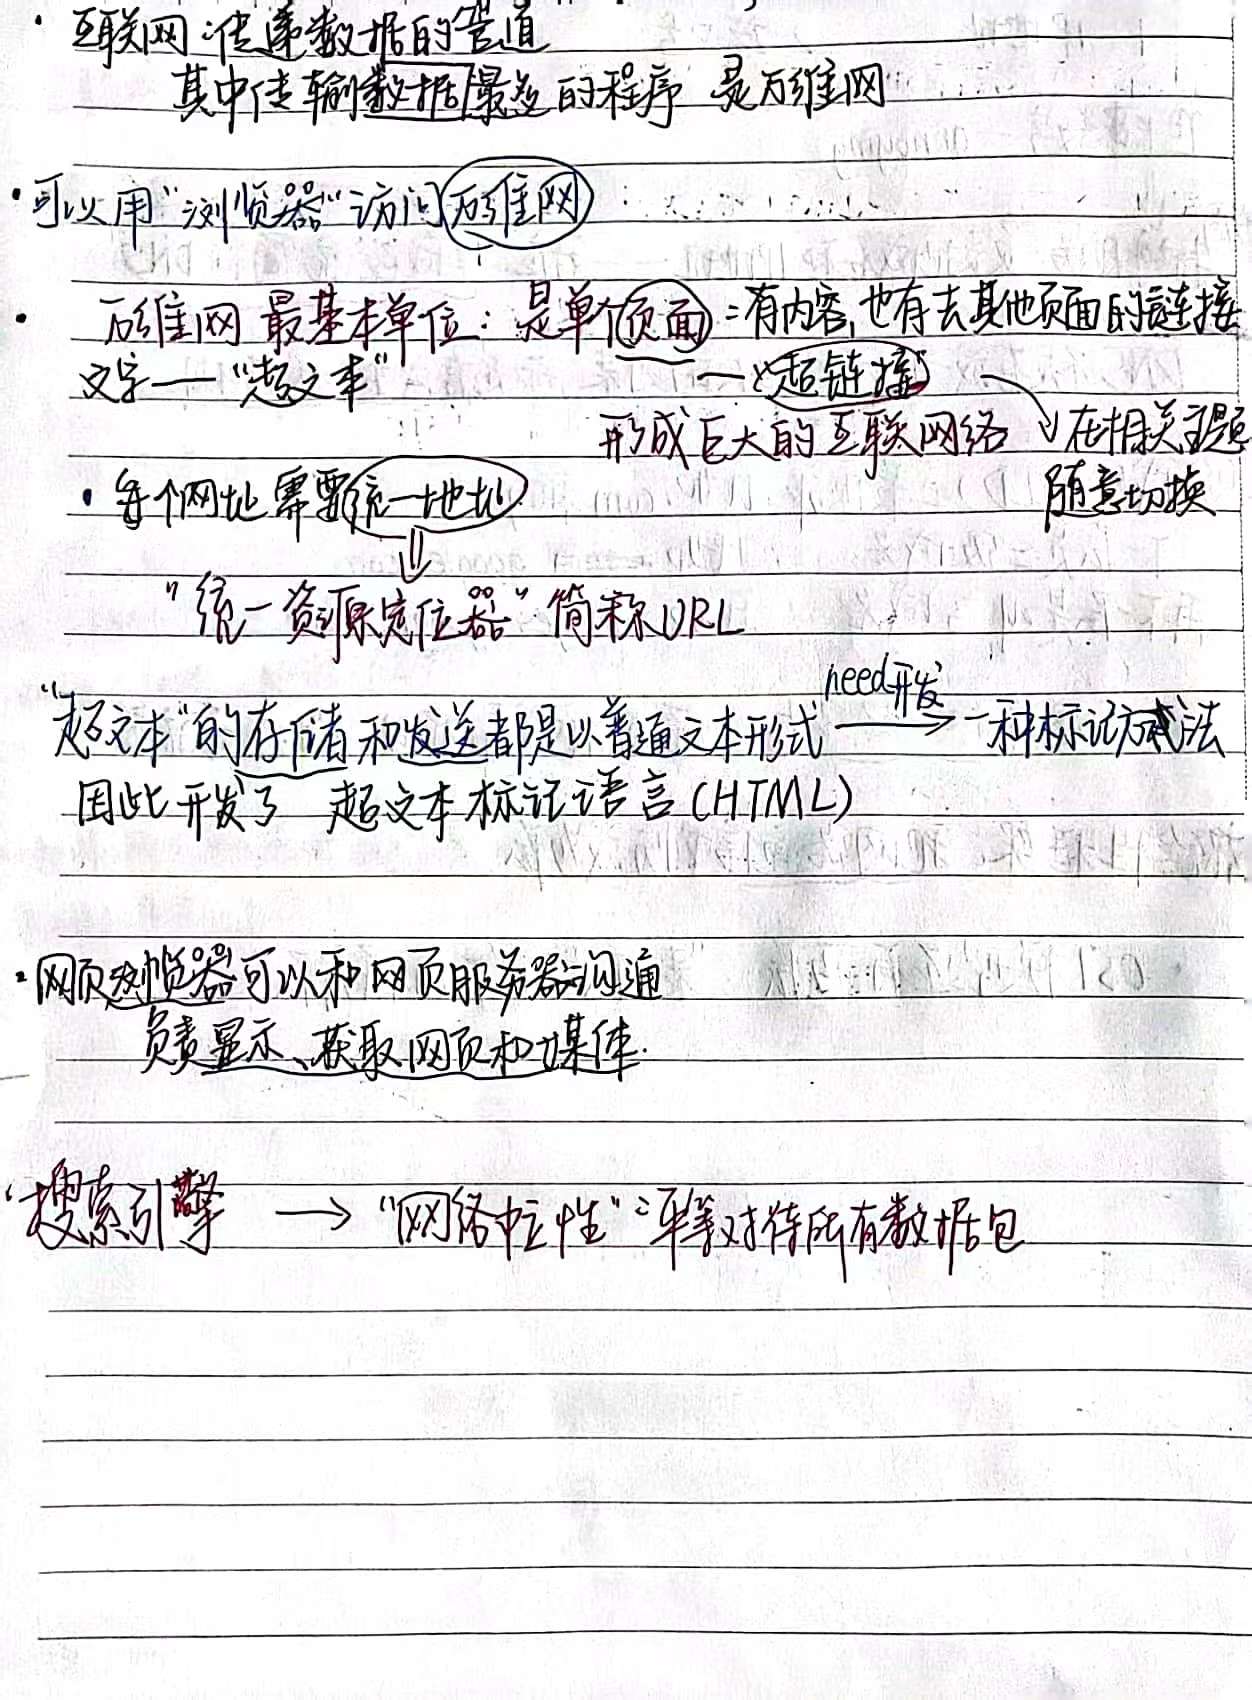 · 互联网：传递数据的管道
其中传输数据最多的程序 是万维网
· 可以用"浏览器"访问万维网
· 万维网 最基本单位：是单个页面：有内容,也有去其他页面的链接
文字——"超文本" ——>"超链接"
形成巨大的互联网络 在相关主题
随意切换
· 每个网址需要统一地址
"统一资源定位器" 简称URL
need开发
"超文本"的存储和发送都是以普通文本形式 ——> 一种标记方法
因此开发了 超文本标记语言(HTML)
· 网页浏览器可以和网页服务器沟通
负责显示、获取网页和媒体.
· 搜索引擎 ——> "网络中立性"：平等对待所有数据包